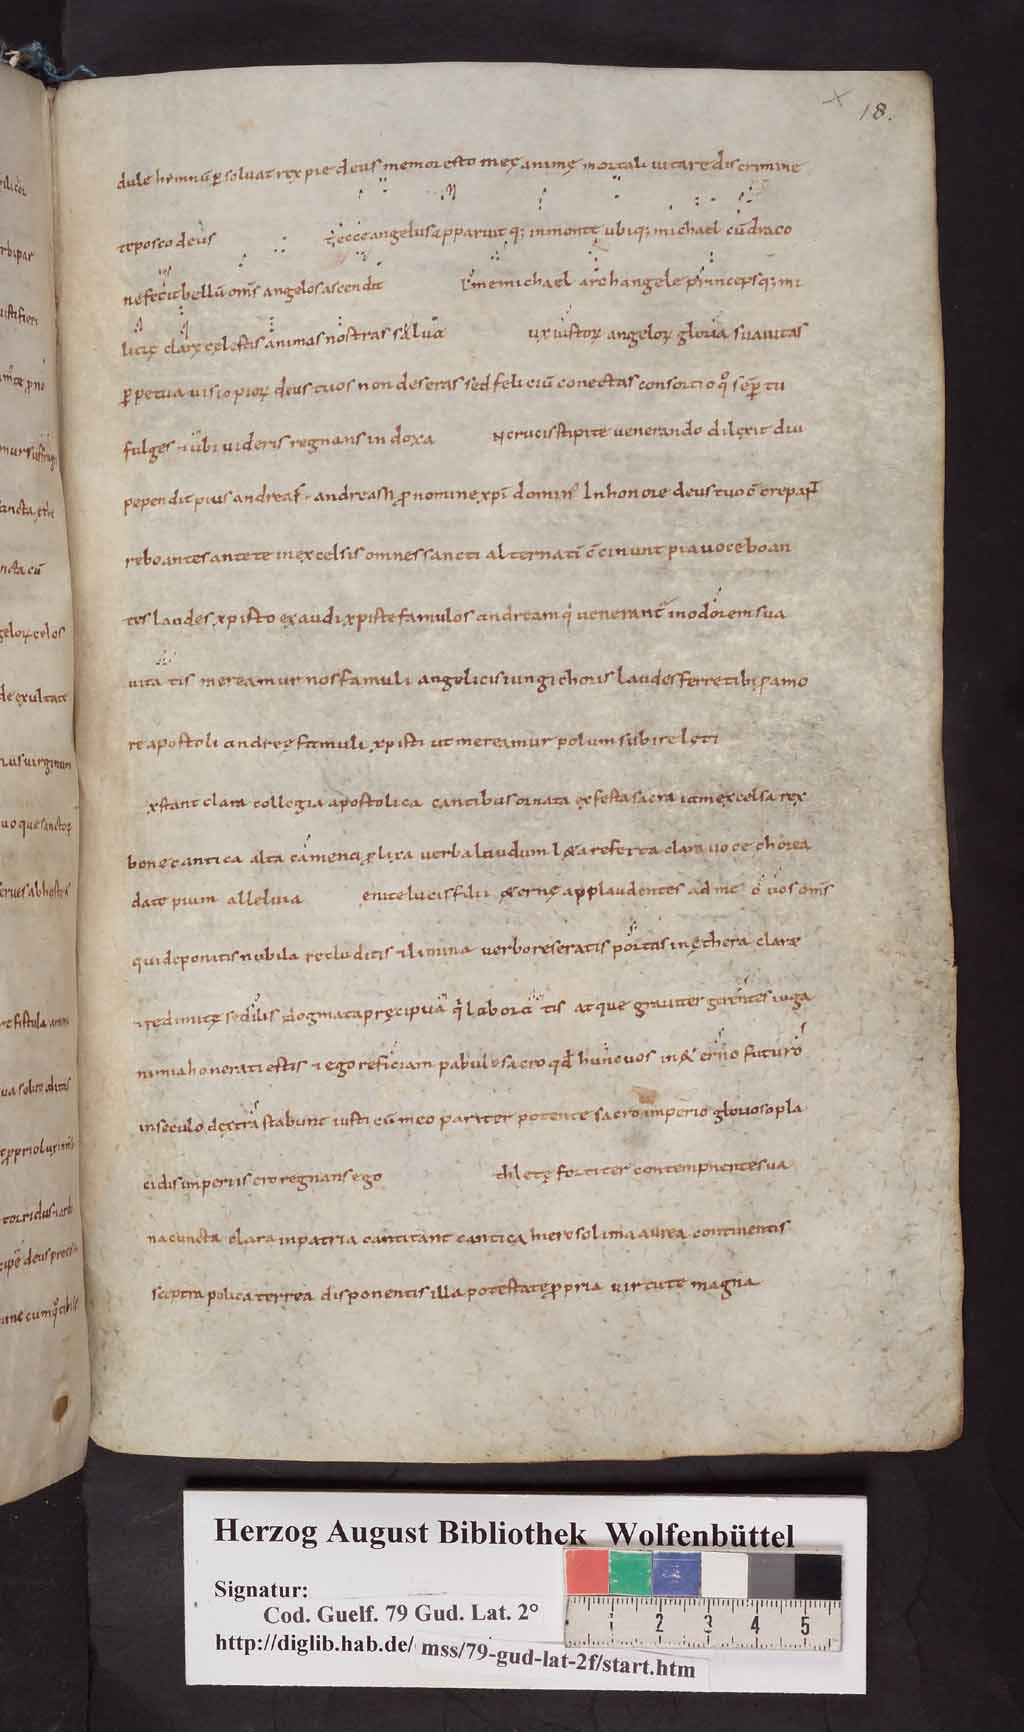 18.
dule hẏmnū ꝑsoluat rex pie deus memor esto meę animę mortali uitare discrimine
te posco deus &ecce angelus apparuit q; in monte ubiq; michael cū draco
ne fecit bellū om̄s angelos ascendit me michael archangele princepsq; mi
licię clarę cęlestis animas nostras salua ux iustoꝝ angeloꝝ gloria suauitas
ꝑpetua uisio pioꝝ deus tuos non deseras sed feliciū conectas consortio sēꝑ tu
fulges & ubi uideris regnans in doxa N crucis stipite uenerando dilexit diu
pependit pius andreas andreas ꝓ nomine xp̄i domini In honore deus tuo
reboantes ante te in excelsis omnes sancti alternatī c̄cinunt pia uoce boan
tes laudes xpisto exaudi xpiste famulos andream q̇ uenerant̄ in odorem sua
uita tis mereamur nos famuli angelicis iungi choris laudes ferre tibi p amo
re apostoli andreę famuli xpisti ut mereamur polum subire lęti
xstant clara collegia apostolica cantibus ornata ex festa sacra excelsa rex
bone cantica alta camena ꝑ lira uerba laudum l&a referta clara uoce chorea
date pium alleluia enite lucis filii &ernę applaudentes ad me ō uos om̄s
qui deponitis nubila recluditis & limina uerbo reseratis portas in ęthera clarę
& redimitę sedilis dogmata pręcipua q̇ labora tis atque grauiter gerentes iuga
nimia honerati estis & ego reficiam pabulo sacro qd̄ hunc uos in &erno futuro
in seculo dextra stabunt iusti cū meo pariter potente sacro imperio glorioso pla
cidis imperiis ero regnans ego thletę fortiter contempnentes ua
na cuncta clara in patria cantitant cantica hierosolima aurea continentis
sceptra polica terrea disponentis illa potestate ꝓpria uirtute magna
Herzog August Bibliothek Wolfenbüttel
Signatur:
Cod. Guelf. 79 Gud. Lat. 2°
http://diglib.hab.de/ mss/79-gud-lat-2f/start.htm
1 2 3 4 5